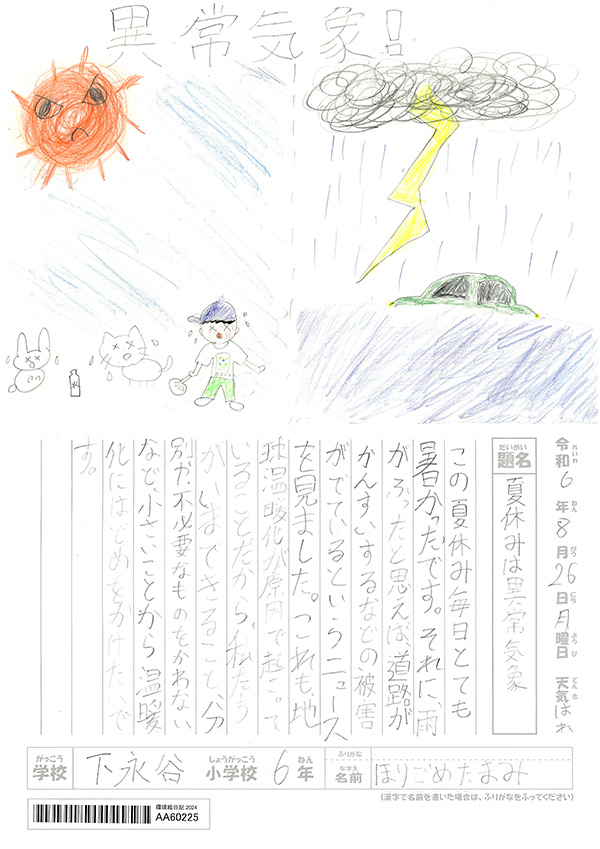 異常気象!
令和6年8月26日月曜日 天気はれ
れいわ ねん がつ にち ようび てんき
だいめい
題名
夏休みは異常気象
この夏休み毎日とても
暑かったです。それに、雨
がふったと思えば、道路が
かんすいするなどの被害
がでているというニュース
を見ました。これも、地
球温暖化が原因で起こって
いることだから、私たち
がいまできること、分
別や、不必要なものをかわない
など、小さいことから温暖
化にはどめをかけたいで
す。
がっこう しょうがっこう ねん なまえ ふりがな
学校 下永谷 小学校 6年 名前 ほりごめたまみ
(漢字で名前を書いた場合は、ふりがなをふってください)
環境絵日記 2024
AA60225